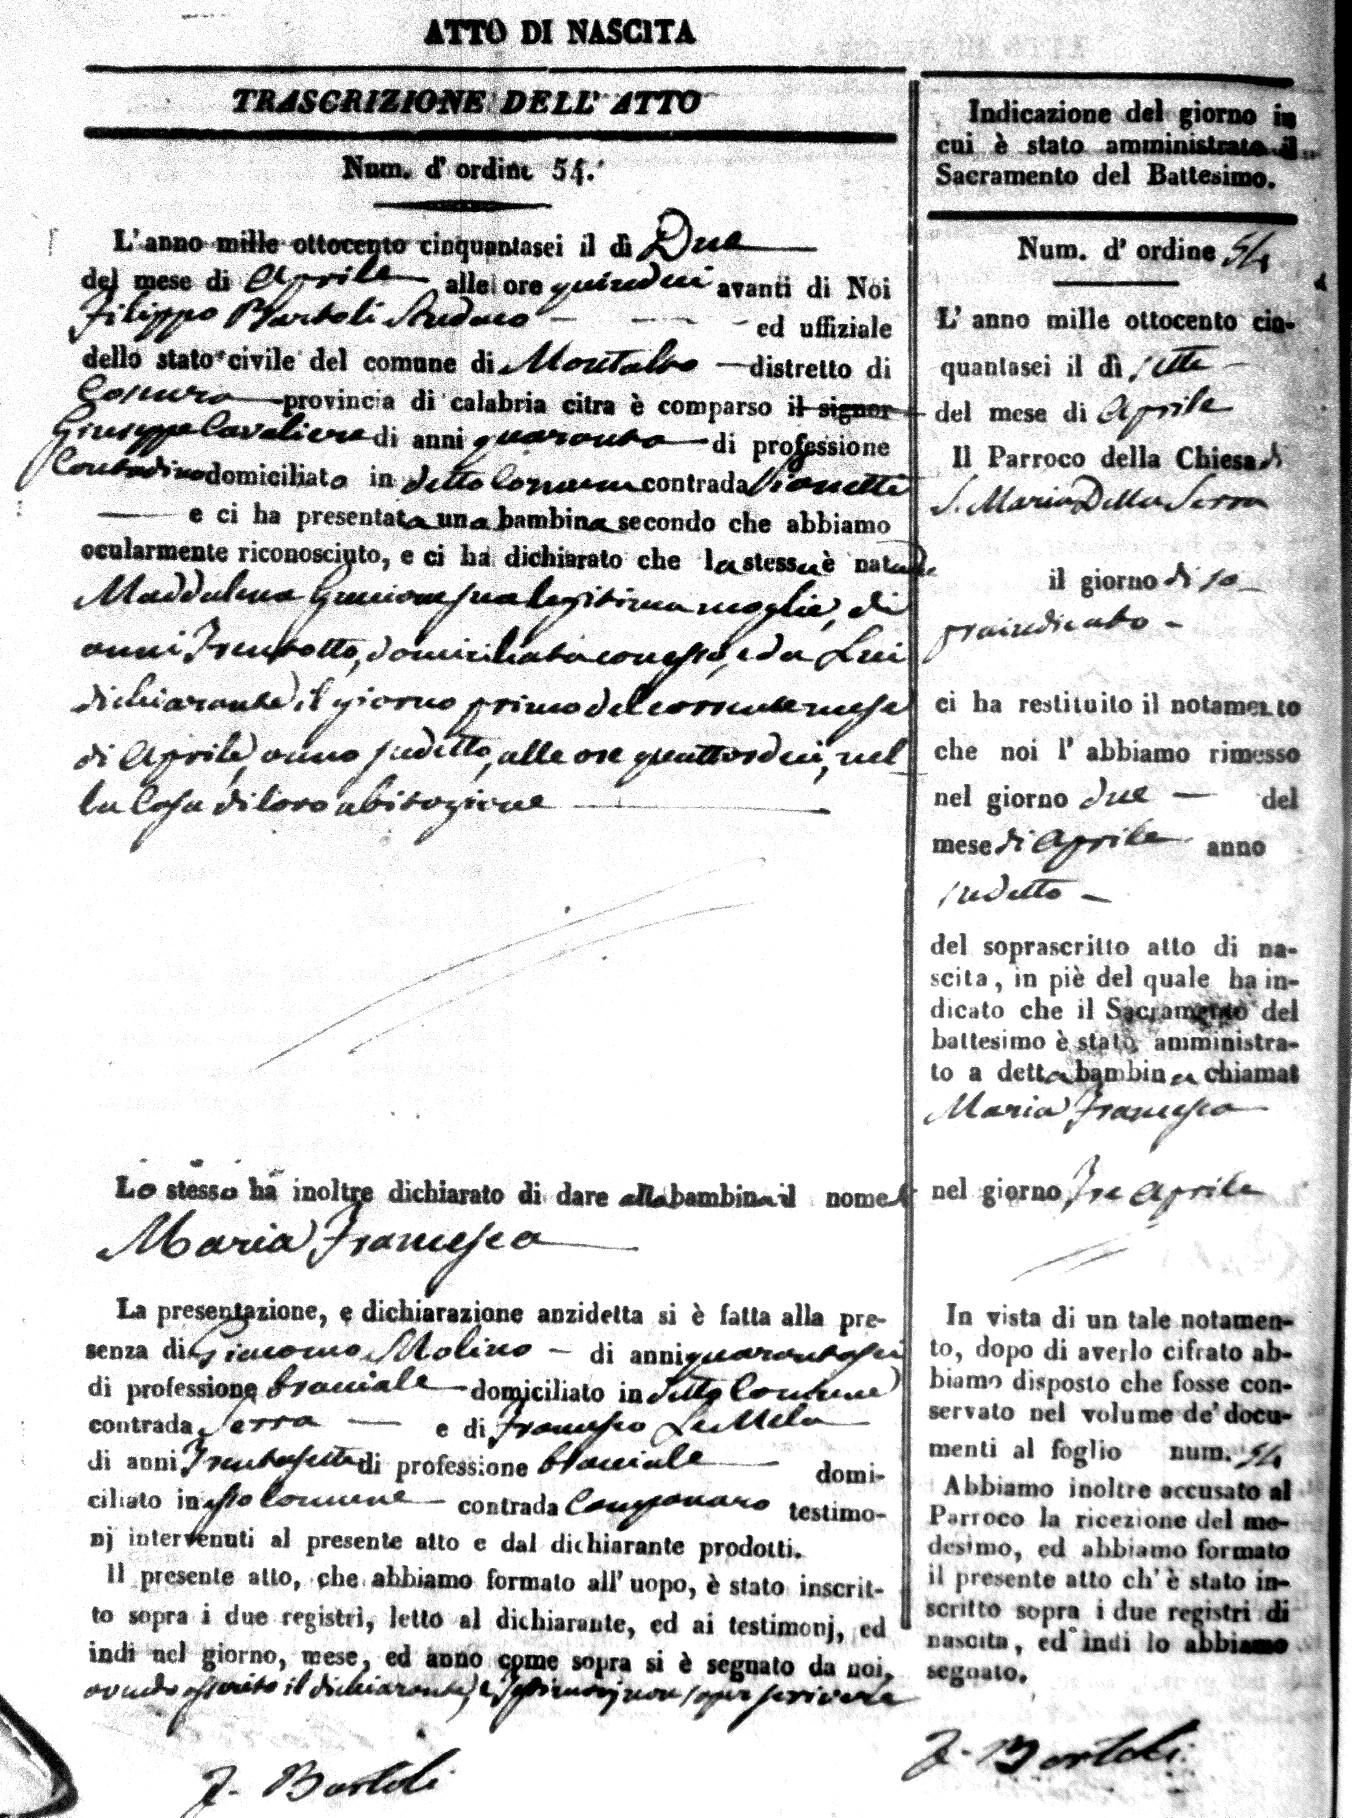 ATTO DI NASCITA
TRASCRIZIONE DELL' ATTO
Num. d' ordine 54.
L' anno mille ottocento cinquantasei il dì Due
del mese di Aprile alle ore quindici avanti di Noi
Filippo Bartoli Sindaco ed uffiziale
dello stato civile del comune di Montalto distretto di
Cosenza provincia di calabria citra è comparso il signor
Giuseppe Cavaliere di anni quaranta di professione
Contadino domiciliato in detto Comune contrada
e ci ha presentata una bambina secondo che abbiamo
ocularmente riconosciuto, e ci ha dichiarato che la stessa è nata da
Maddalena sua legitima moglie, di
anni Trentotto, domiciliata con esso, e da Lui
dichiarante, il giorno primo del corrente mese
di Aprile, anno sudetto, alle ore quattordici, nel
la Casa di loro abitazione
Lo stesso ha inoltre dichiarato di dare alla bambina il nome di
Maria Francesca
La presentazione, e dichiarazione anzidetta si è fatta alla pre-
senza di Giacomo Molino di anni quarantasei
di professione bracciale domiciliato in detto Comune
contrada Serra e di Francesco
di anni Trentasette di professione bracciale domi-
ciliato in esso Comune contrada testimo-
nj intervenuti al presente atto e dal dichiarante prodotti.
Il presente atto, che abbiamo formato all' uopo, è stato inscrit-
to sopra i due registri, letto al dichiarante, ed ai testimonj, ed
indi nel giorno, mese, ed anno come sopra si è segnato da noi,
avendo asserito il dichiarante, e testimonj non saper scrivere
F. Bartoli
Indicazione del giorno in
cui è stato amministrato il
Sacramento del Battesimo.
Num. d' ordine 54
L' anno mille ottocento cin-
quantasei il dì sette
del mese di Aprile
Il Parroco della Chiesa di
S. Maria Della Serra
il giorno di so
praindicato
ci ha restituito il notamento
che noi l' abbiamo rimesso
nel giorno due del
mese di Aprile anno
sudetto
del soprascritto atto di na-
scita, in piè del quale ha in-
dicato che il Sacramento del
battesimo è stato amministra-
to a detta bambina chiamat
Maria Francesca
nel giorno Tre Aprile
In vista di un tale notamen-
to, dopo di averlo cifrato ab-
biamo disposto che fosse con-
servato nel volume de' docu-
menti al foglio num. 54
Abbiamo inoltre accusato al
Parroco la ricezione del me-
desimo, ed abbiamo formato
il presente atto ch' è stato in-
scritto sopra i due registri di
nascita, ed indi lo abbiamo
segnato.
F. Bartoli